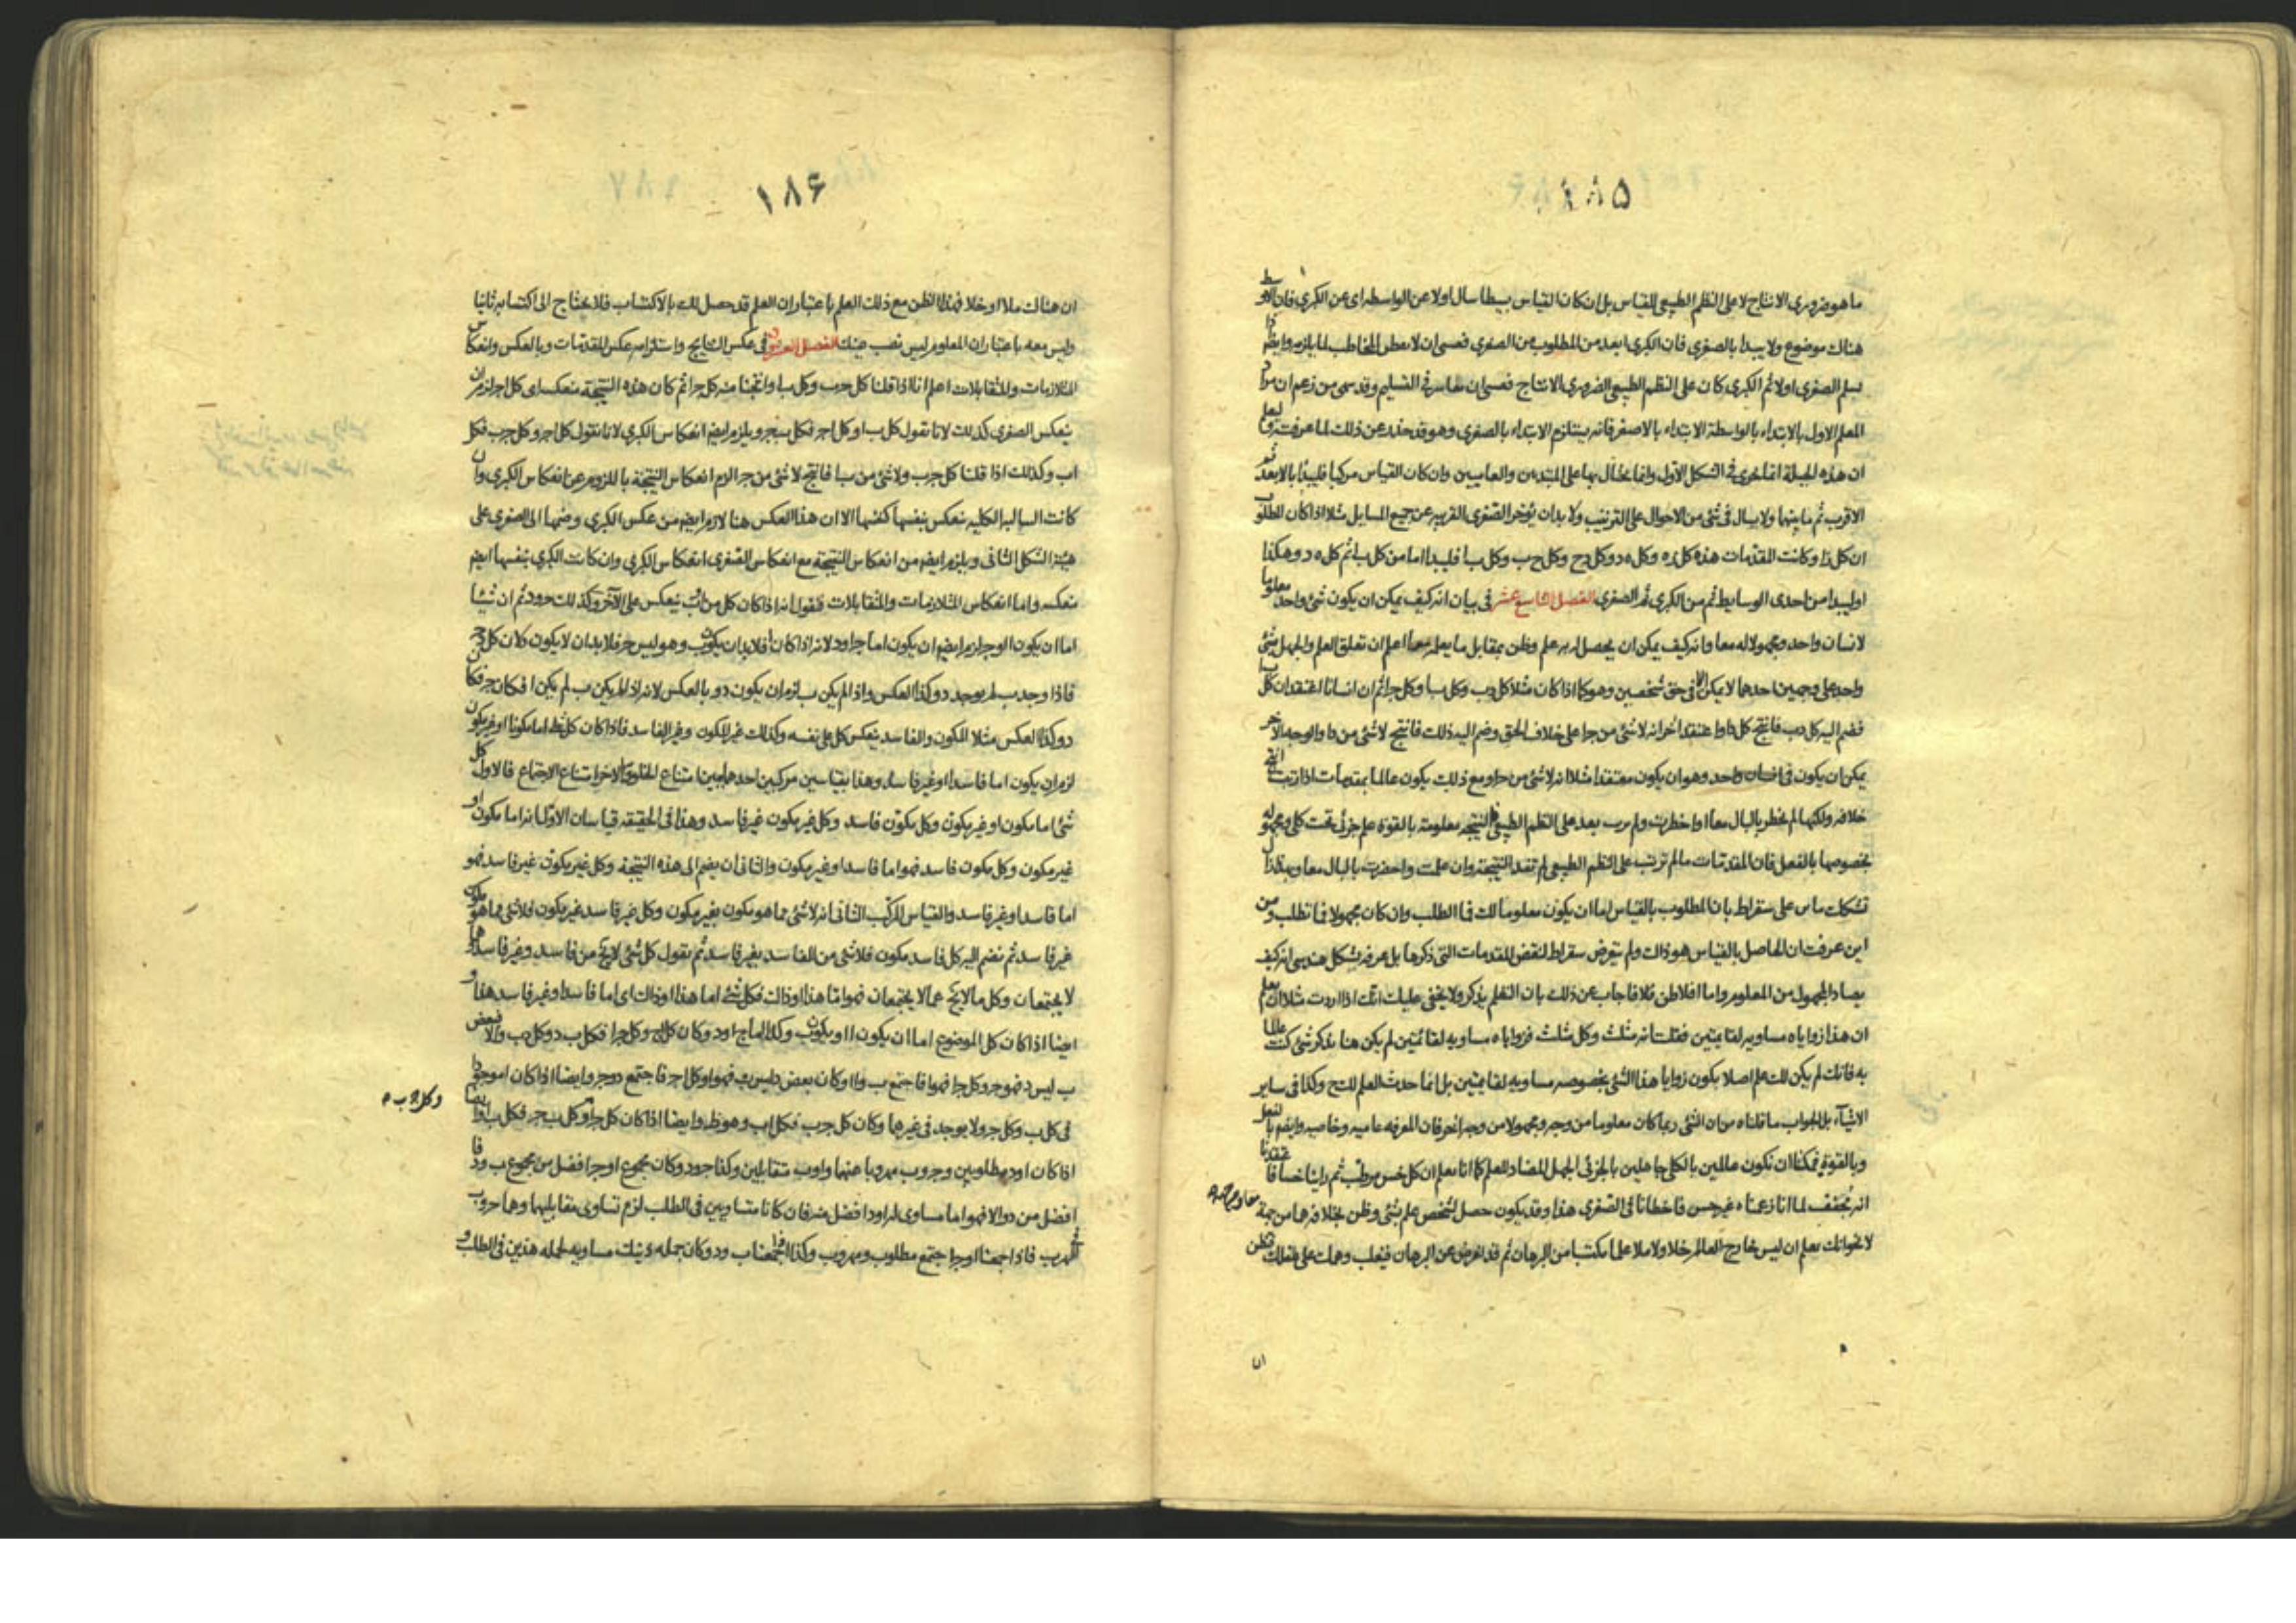 ١٨٥
ما هو ضروري الانتاج لا على النظم الطبيعي للقياس بل ان كان القياس بسيطا سال اولا عن الواسطه اى عن الكبرى فان الاوسط
هناك موضوع ولا يبدا بالصغرى فان الكبرى ابعد من المطلوب من الصغرى فعسى ان لا يفطن المخاطب لما يلزم وايضا
يسلم الصغرى اولا ثم الكبرى كان على النظم الطبيعي الضرورى الانتاج فعسى ان في التسليم وقد سمى من زعم ان مراد
المعلم الاول بالابتداء بالواسطة الابتداء بالاصغر فانه يستلزم الابتداء بالصغرى وهو قد حذر عن ذلك لما عرفت
ان هذه الحيلة انما تجرى في الشكل الاول وانما يحتال بها على المبتدءين والعاميين وان كان القياس مركبا فليبدا بالابعد ثم
الاقرب ثم ما بينهما ولا يسال في شئ من الاحوال على الترتيب ولا بد ان يؤخر الصغرى القريبه عن جميع المسايل مثلا اذا كان المطلوب
ان كل ا و كانت المقدمات هذه كل ه وكل ه د وكل د ح وكل ح ب وكل ب ا فليبدا اما من كل ب ا ثم كل ه د وهكذا
او ليبدا من احدى الوسايط ثم من الكبرى ثم الصغرى الفصل التاسع عشر في بيان انه كيف يمكن ان يكون شئ واحد معلوما
لانسان واحد ومجهولا له معا وانه كيف يمكن ان يحصل له به علم وظن بمقابل ما يعلم معا اعلم ان تعلق العلم والجهل بشئ
واحد على وجهين احدهما لا يمكن الا في حق شخصين وهو كما اذا كان مثلا كل د ب وكل ب ا وكل ج ا ثم ان انسانا اعتقد ان كل
فضم اليه كل د ب فانتج كل د ا واعتقد اخر انه لا شئ من ج ا على خلاف الحق وضم اليه ذلك فانتج لا شئ من د ا والوجه الاخر
يمكن ان يكون في انسان واحد وهو ان يكون معتقدا مثلا انه لا شئ من ج ا ومع ذلك يكون عالما بمقدمات اذا رتبت
خلافه ولكنها لم يخطر بالبال معا او خطرت ولم يرتب بعد على النظم الطبيعي فالنتيجه معلومة بالقوة علم جزئى تحت كلى ومجهوله
بخصوصها بالفعل فان المقدمات ما لم ترتب على النظم الطبيعي لم تفد النتيجة وان علمت واحضرت بالبال معا وبهذا
تشكك مانن على سقراط بان المطلوب بالقياس اما ان يكون معلوما لك فما الطلب وان كان مجهولا فما تطلب ومن
اين عرفت ان الحاصل بالقياس هو ذاك ولم يتعرض سقراط لنقض المقدمات التى ذكرها بل عرضه بشكل هندسى انه كيف
يصاد المجهول من المعلوم واما افلاطن فلا فاجاب عن ذلك بان التعلم تذكر ولا يخفى عليك انك اذا اردت مثلا ان تعلم
ان هذا زواياه مساويه لقائمتين فقلت انه مثلث وكل مثلث فزواياه مساويه لقائمتين لم يكن هنا تذكر شئ كنت عالما
به فانك لم يكن لك علم اصلا بكون زوايا هذا الشئ بخصوصه مساويه لقائمتين بل انما حدث العلم لك ح وكذا فى ساير
الاشياء بل الجواب ما قلناه من ان الشئ ربما كان معلوما من وجه ومجهولا من وجه اخر فان المعرفه عاميه وخاصيه وايضا بالفعل
وبالقوة فيمكننا ان نكون عالمين بالكلى جاهلين بالجزئى الجهل المضاد للعلم كما انا نعلم ان كل خس مرطب ثم راينا خسا فاعتقدنا
انه مجفف لما انا زعمناه غير خس فاخطانا فى الصغرى هذا وقد يكون حصل لشخص علم بشئ وظن بخلافه معا من جهة
لا نحو انك تعلم ان ليس خارج العالم خلا ولا ملا علما مكتسبا من البرهان ثم قد تعرض عن البرهان فيغلب وهمك على عقلك فتظن
ان
١٨۶
ان هناك ملا او خلا فهذا الظن مع ذلك العلم باعتبار ان العلم قد حصل لك بالاكتساب فلا يحتاج الى اكتسابه ثانيا
وليس معه باعتبار ان المعلوم ليس نصب عينك الفصل العشرون في عكس النتايج واستلزامه عكس المقدمات وبالعكس وانعكاس
المتلازمات والمتقابلات اعلم انا اذا قلنا كل ج ب وكل ب ا وانتجنا منه كل ج ا ثم كان هذه النتيجة منعكسه اى كل ا ج لزم ان
ينعكس الصغرى كذلك لانا نقول كل ب ا وكل ا ج فكل ب ج ويلزم ايضا انعكاس الكبرى لانا نقول كل ا ج وكل ج ب فكل
ا ب وكذلك اذا قلنا كل ج ب ولا شئ من ب ا فانتج لا شئ من ج ا لازم انعكاس النتيجة باللزوم عن انعكاس الكبرى وان
كانت السالبه الكليه تنعكس بنفسها كنفسها الا ان هذا العكس هنا لازم ايضا من عكس الكبرى وضمها الى الصغرى على
هيئة الشكل الثانى ويلزم ايضا من انعكاس النتيجة مع انعكاس الصغرى انعكاس الكبرى وان كانت الكبرى بنفسها ايضا
منعكسه واما انعكاس المتلازمات والمتقابلات فنقول انه اذا كان كل من ا ب ينعكس على الآخر وكذلك ج ود ثم ان شيئا
اما ان يكون ا او ج لزم ايضا ان يكون اما ج او د لانه اذا كان ا فلا بد ان يكون ب وهو ليس ج فلا بد ان لا يكون د لان كل د ج
فاذا وجد ب لم يوجد د وكذا العكس واذا لم يكن ب لزم ان يكون د وبالعكس لانه اذا لم يكن ب لم يكن ا فكان ج فكان
د وكذا العكس مثلا المكون والفاسد ينعكس كل على نفسه وكذلك غير المكون وغير الفاسد فاذا كان كل شئ اما مكونا او غير مكون
لزم ان يكون اما فاسدا او غير فاسد وهذا بقياسين مركبين احدهما يبين امتناع الخلو والاخر امتناع الاجتماع فالاول كل
شئ اما مكون او غير مكون وكل مكون فاسد وكل غير مكون غير فاسد وهذا فى الحقيقه قياسان الاول انه اما مكون او
غير مكون وكل مكون فاسد فهو اما فاسد او غير مكون والثانى ان يضم الى هذه النتيجة وكل غير مكون غير فاسد فهو
اما فاسد او غير فاسد والقياس المركب الثانى انه لا شئ مما هو مكون بغير مكون وكل غير فاسد غير مكون فلا شئ مما هو مكون
غير فاسد ثم نضم اليه كل فاسد مكون فلا شئ من الفاسد بغير فاسد ثم نقول كل شئ لا يخ من فاسد وغير فاسد وهما
لا يجتمعان وكل ما لا يخ عما لا يجتمعان فهو اما هذا او ذاك فكل شئ اما هذا او ذاك اى اما فاسد او غير فاسد هذا و
ايضا اذا كان كل الموضوع اما ان يكون ا او يكون ب وكذا اما ج او د وكان كل ج وكل ج ا فكل ب د وكل د ب والا فبعض
ب ليس د فهو ج وكل ج ا فهو ا فاجتمع ب وا او كان بعض د ليس ب فهو ا وكل ا ج فاجتمع د وج وايضا اذا كان ا موجودا
فى كل ب وكل ج ولا يوجد فى غيرهما وكان كل ج ب فكل ا ب وهو ظ وايضا اذا كان كل ج ا وكل ب ج فكل ب ا وايضا
وكل ج ب
اذا كان ا ود مطلوبين وج وب مهروبا عنهما وا وب متقابلين وكذا ج ود وكان مجموع ا وج افضل من مجموع ب ود فا
افضل من د والا فهو اما مساوى له او د افضل منه فان كانا متساويين فى الطلب لزم تساوى مقابليهما وهما ج وب
الهرب فاذا جمعنا ا وج اجتمع مطلوب ومهروب وكذا اذا جمعنا ب ود وكان جمله ذينك مساويه لجمله هذين فى الطلب و